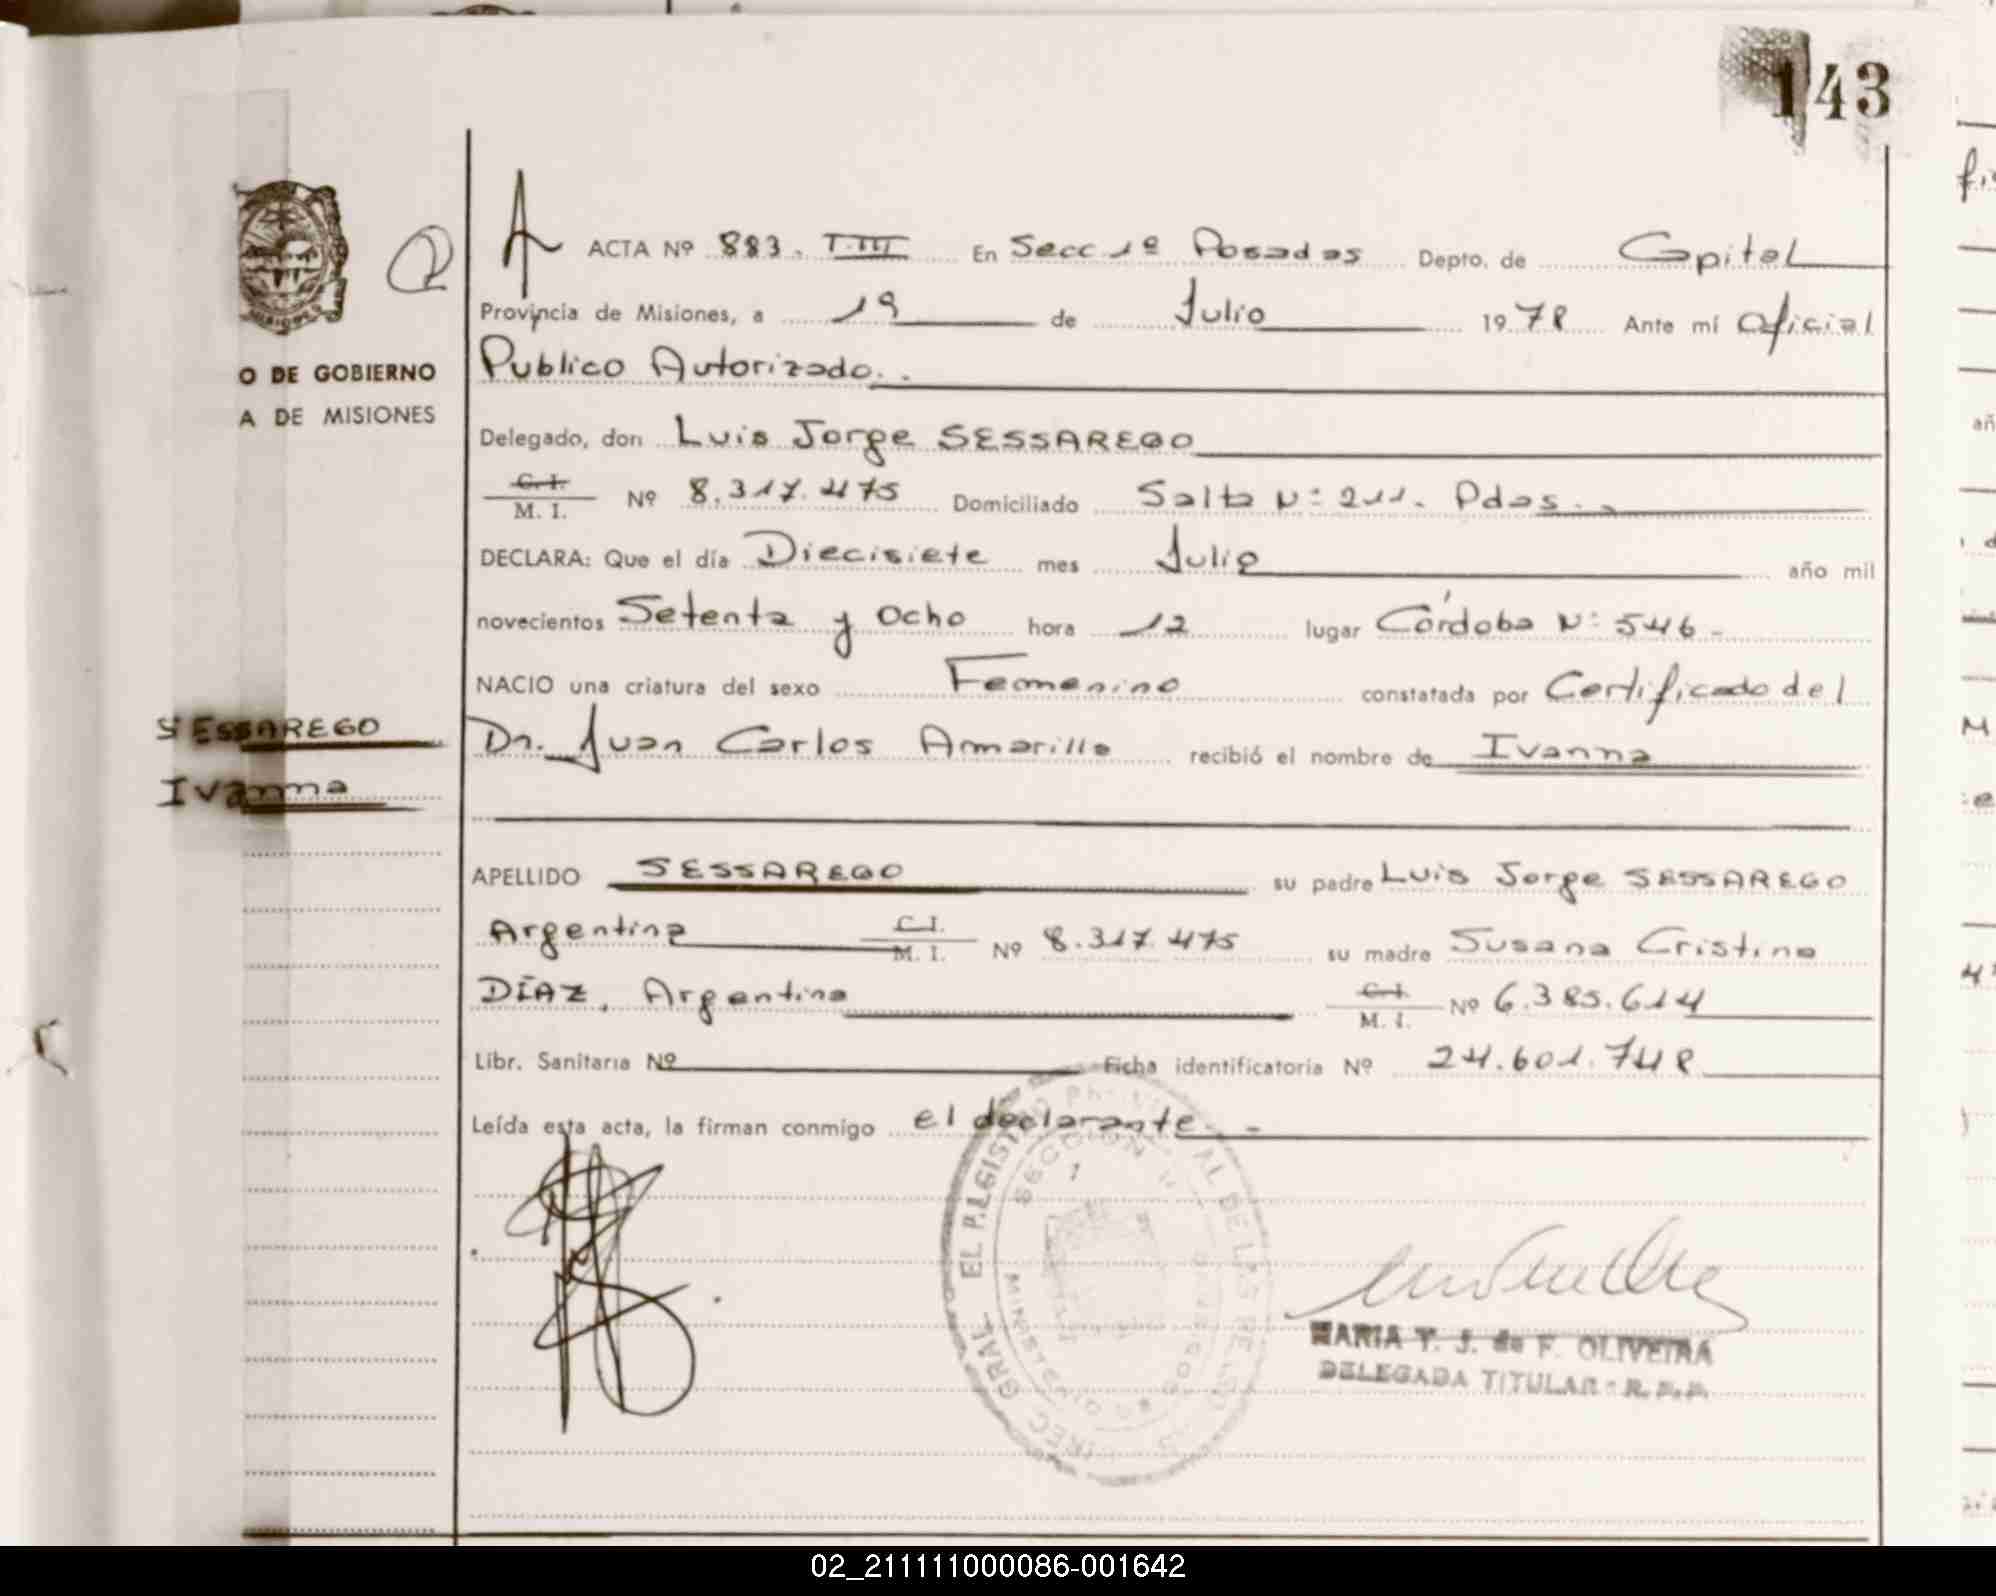 143
ACTA Nº 883. T.III En Secc 1º Posadas Depto. de Capital
Provincia de Misiones, a 19 de Julio 1978 Ante mí Oficial
O DE GOBIERNO
Publico Autorizado.
A DE MISIONES
Delegado, don Luis Jorge SESSAREGO
C.I.
M. I. Nº 8.317.475 Domiciliado Salta Nº 211. Pdas.
DECLARA: Que el día Diecisiete mes Julio año mil
novecientos Setenta y Ocho hora 12 lugar Córdoba Nº 546-
NACIO una criatura del sexo Femenino constatada por Certificado del
SESSAREGO
Dr. Juan Carlos Amarilla recibió el nombre de Ivanna
Ivanna
APELLIDO SESSAREGO su padre Luis Jorge SESSAREGO
Argentina C.I. M. I. Nº 8.317.475 su madre Susana Cristina
DÍAZ, Argentina C.I. M. I. Nº 6.385.614
Libr. Sanitaria Nº Ficha identificatoria Nº 24.601.748
Leída esta acta, la firman conmigo el declarante.-
MARIA T. J. de F. OLIVEIRA
DELEGADA TITULAR - R. P. P.
02_211111000086-001642